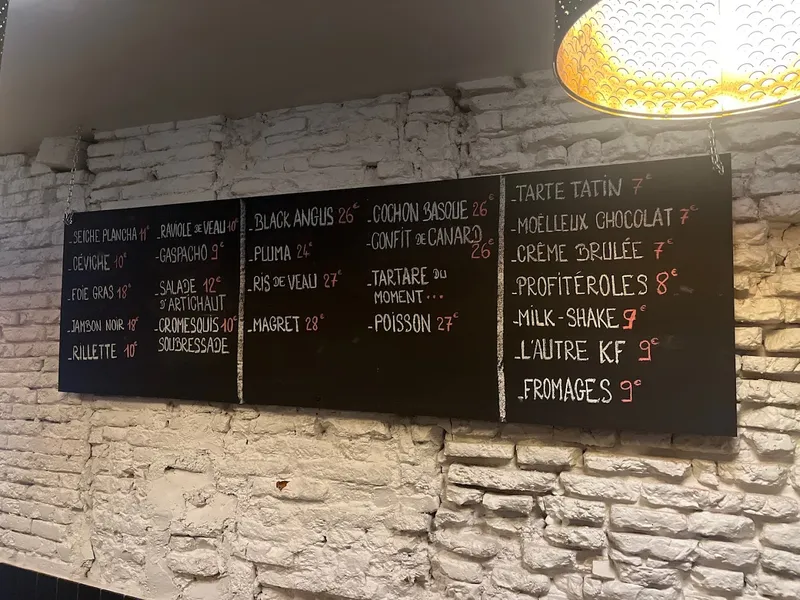 -SEICHE PLANCHA 11€
-CÉVICHE 10€
-FOIE GRAS 18€
-JAMBON NOIR 18€
-RILLETTE 10€
-RAVIOLE DE VEAU 10€
-GASPACHO 9€
-SALADE 12€
D'ARTICHAUT
-CROMESQUIS 10€
SOUBRESSADE
-BLACK ANGUS 26€
-PLUMA 24€
-RIS DE VEAU 27€
-MAGRET 28€
-COCHON BASQUE 26€
-CONFIT DE CANARD
26€
-TARTARE DU
MOMENT...
-POISSON 27€
-TARTE TATIN 7€
-MOËLLEUX CHOCOLAT 7€
-CRÈME BRULÉE 7€
-PROFITÉROLES 8€
-MILK-SHAKE 9€
-L'AUTRE KF 9€
-FROMAGES 9€